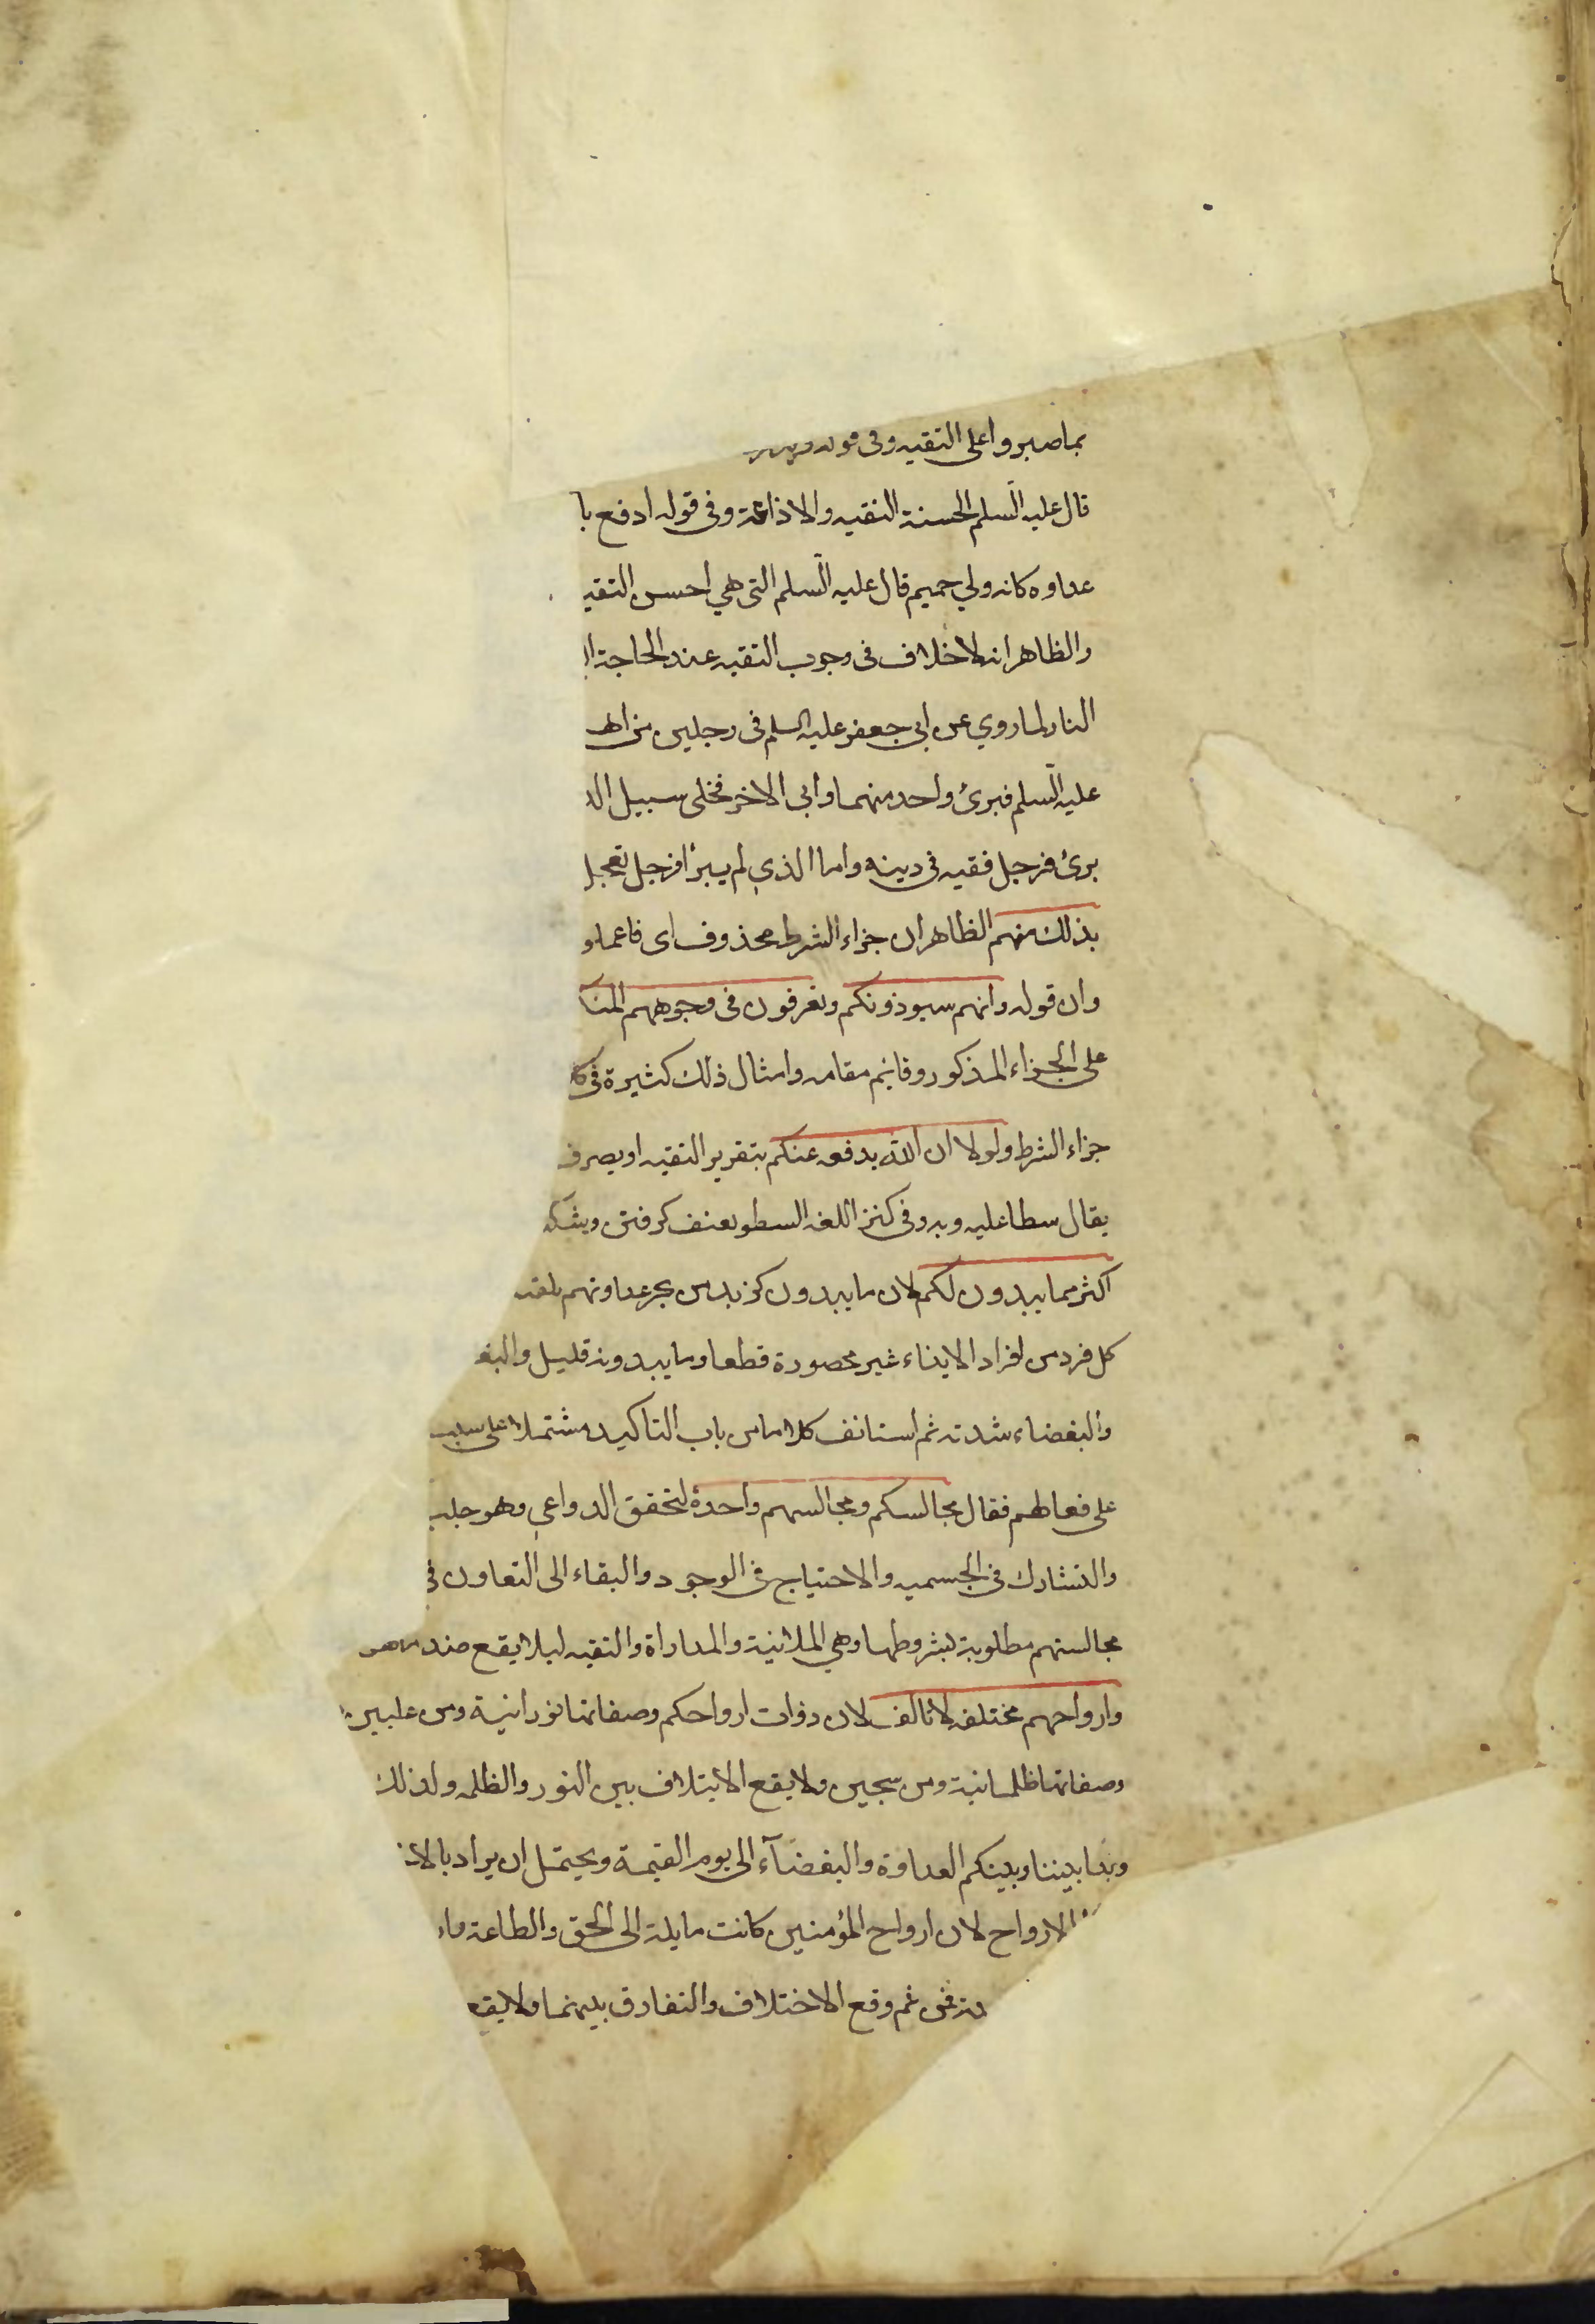 بما صبروا على التقيه وفى قوله
قال عليه السلم الحسنة التقيه والاذاعة وفى قوله ادفع با
عداوه كانه ولي حميم قال عليه السلم التى هي احسن التقيـ
والظاهر انه لا خلاف فى وجوب التقيه عند الحاجة ا
النار لما روي عن ابى جعفر عليه السلم فى رجلين من اهـ
عليه السلم فبرئ واحد منهما وابى الاخر فخلى سبيل الذ
برئ فرجل فقيه فى دينه واما الذي لم يبرأ فرجل تعجل
بذلك منهم الظاهر ان جزاء الشرط محذوف اى فاعملو
وان قوله وانهم سيوذونكم وتعرفون فى وجوههم المنك
على الجزاء المذكور وقائم مقامه وامثال ذلك كثيرة فى
جزاء الشرط ولولا ان الله يدفعه عنكم بتقرير التقيه او يصرف
يقال سطا عليه وبه وفى كنز اللغه السطو بعنف كرفتن
اكثر مما يبدون لكم لان ما يبدون كزبد من بحر عداوتهم
كل فرد من افراد الايذاء غير محصورة قطعا وما يبدونه قليل والبغـ
والبغضاء شدته ثم استانف كلاما من باب التاكيد مشتملا على سبب
على فعالهم فقال مجالسكم ومجالسهم واحدة لتحقق الدواعي وهو جلب
والتشارك فى الجسميه والاحتياج فى الوجود والبقاء الى التعاون فى
مجالستهم مطلوبة بشروطها وهي الملاينة والمداراة والتقيه ليلا يقع ضد ما هو
وارواحهم مختلفه لا تاتلف لان ذوات ارواحكم وصفاتها نورانية ومن عليين
وصفاتها ظلمانية ومن سجين ولا يقع الايتلاف بين النور والظلمه ولذلك
وبدا بيننا وبينكم العداوة والبغضآء الى يوم القيمة ويحتمل ان يراد بالاخـ
الارواح لان ارواح المؤمنين كانت مايلة الى الحق والطاعة وار
فمن ثم وقع الاختلاف والتفارق بينهما ولا يقع